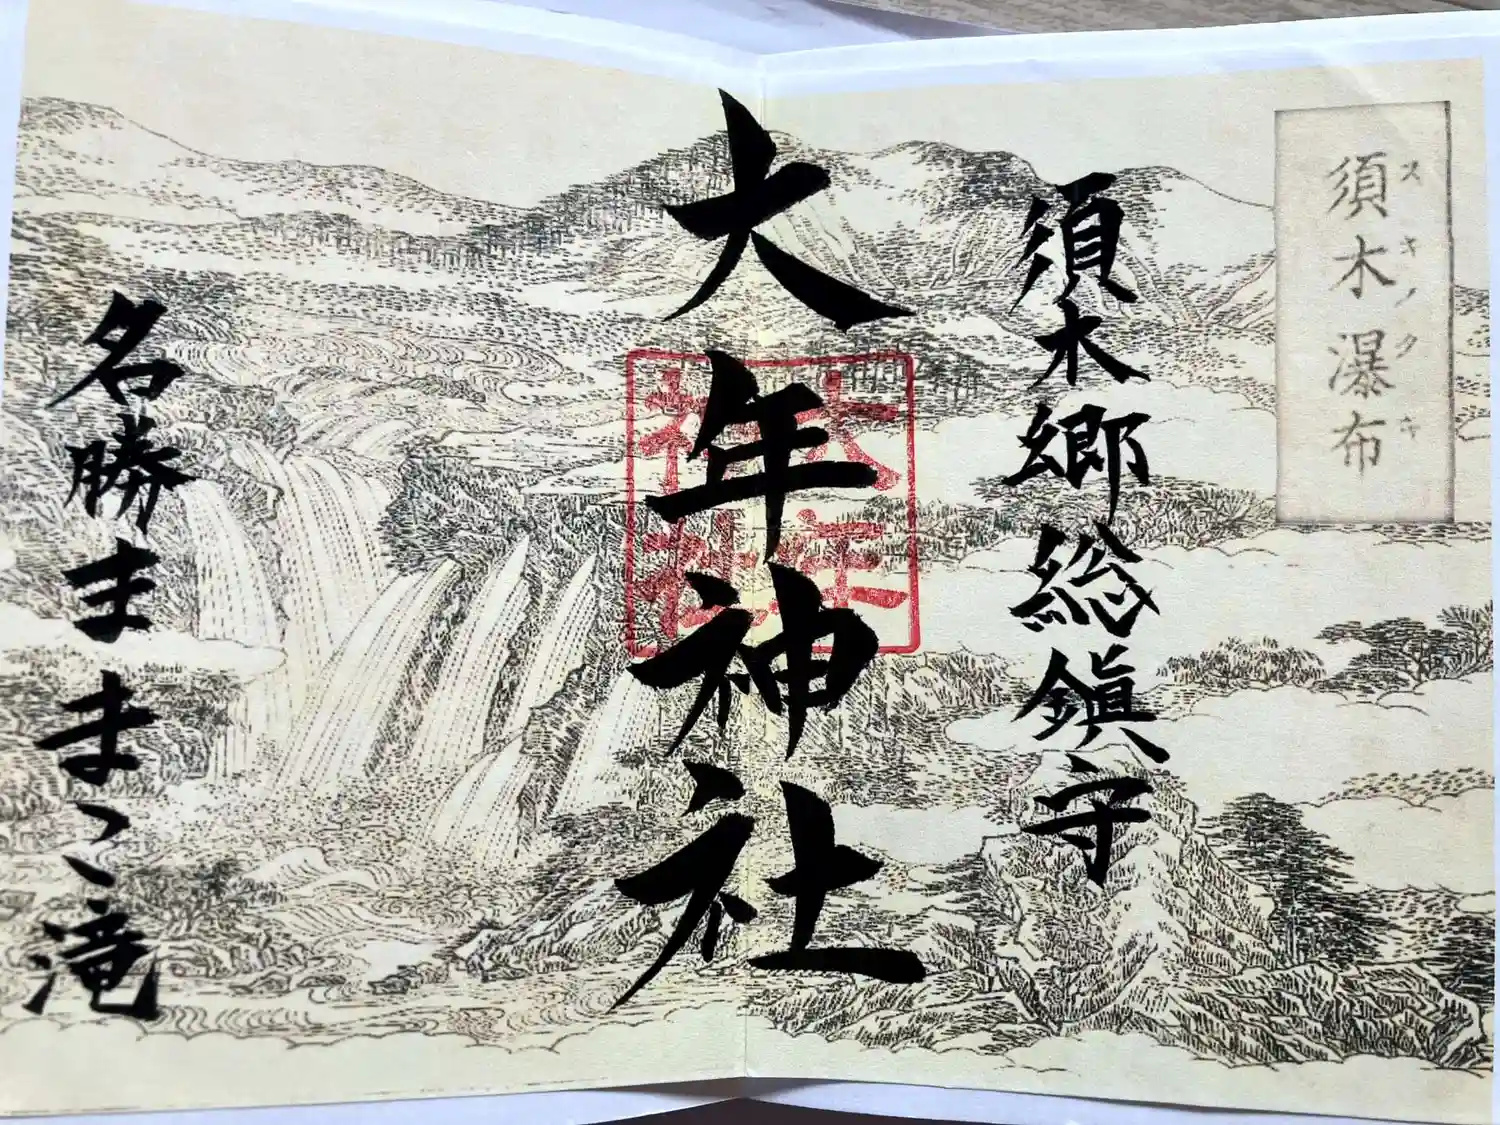 須木瀑布
スキノタキ
須木郷総鎮守
大年神社
大年
神社
名勝ままこ滝